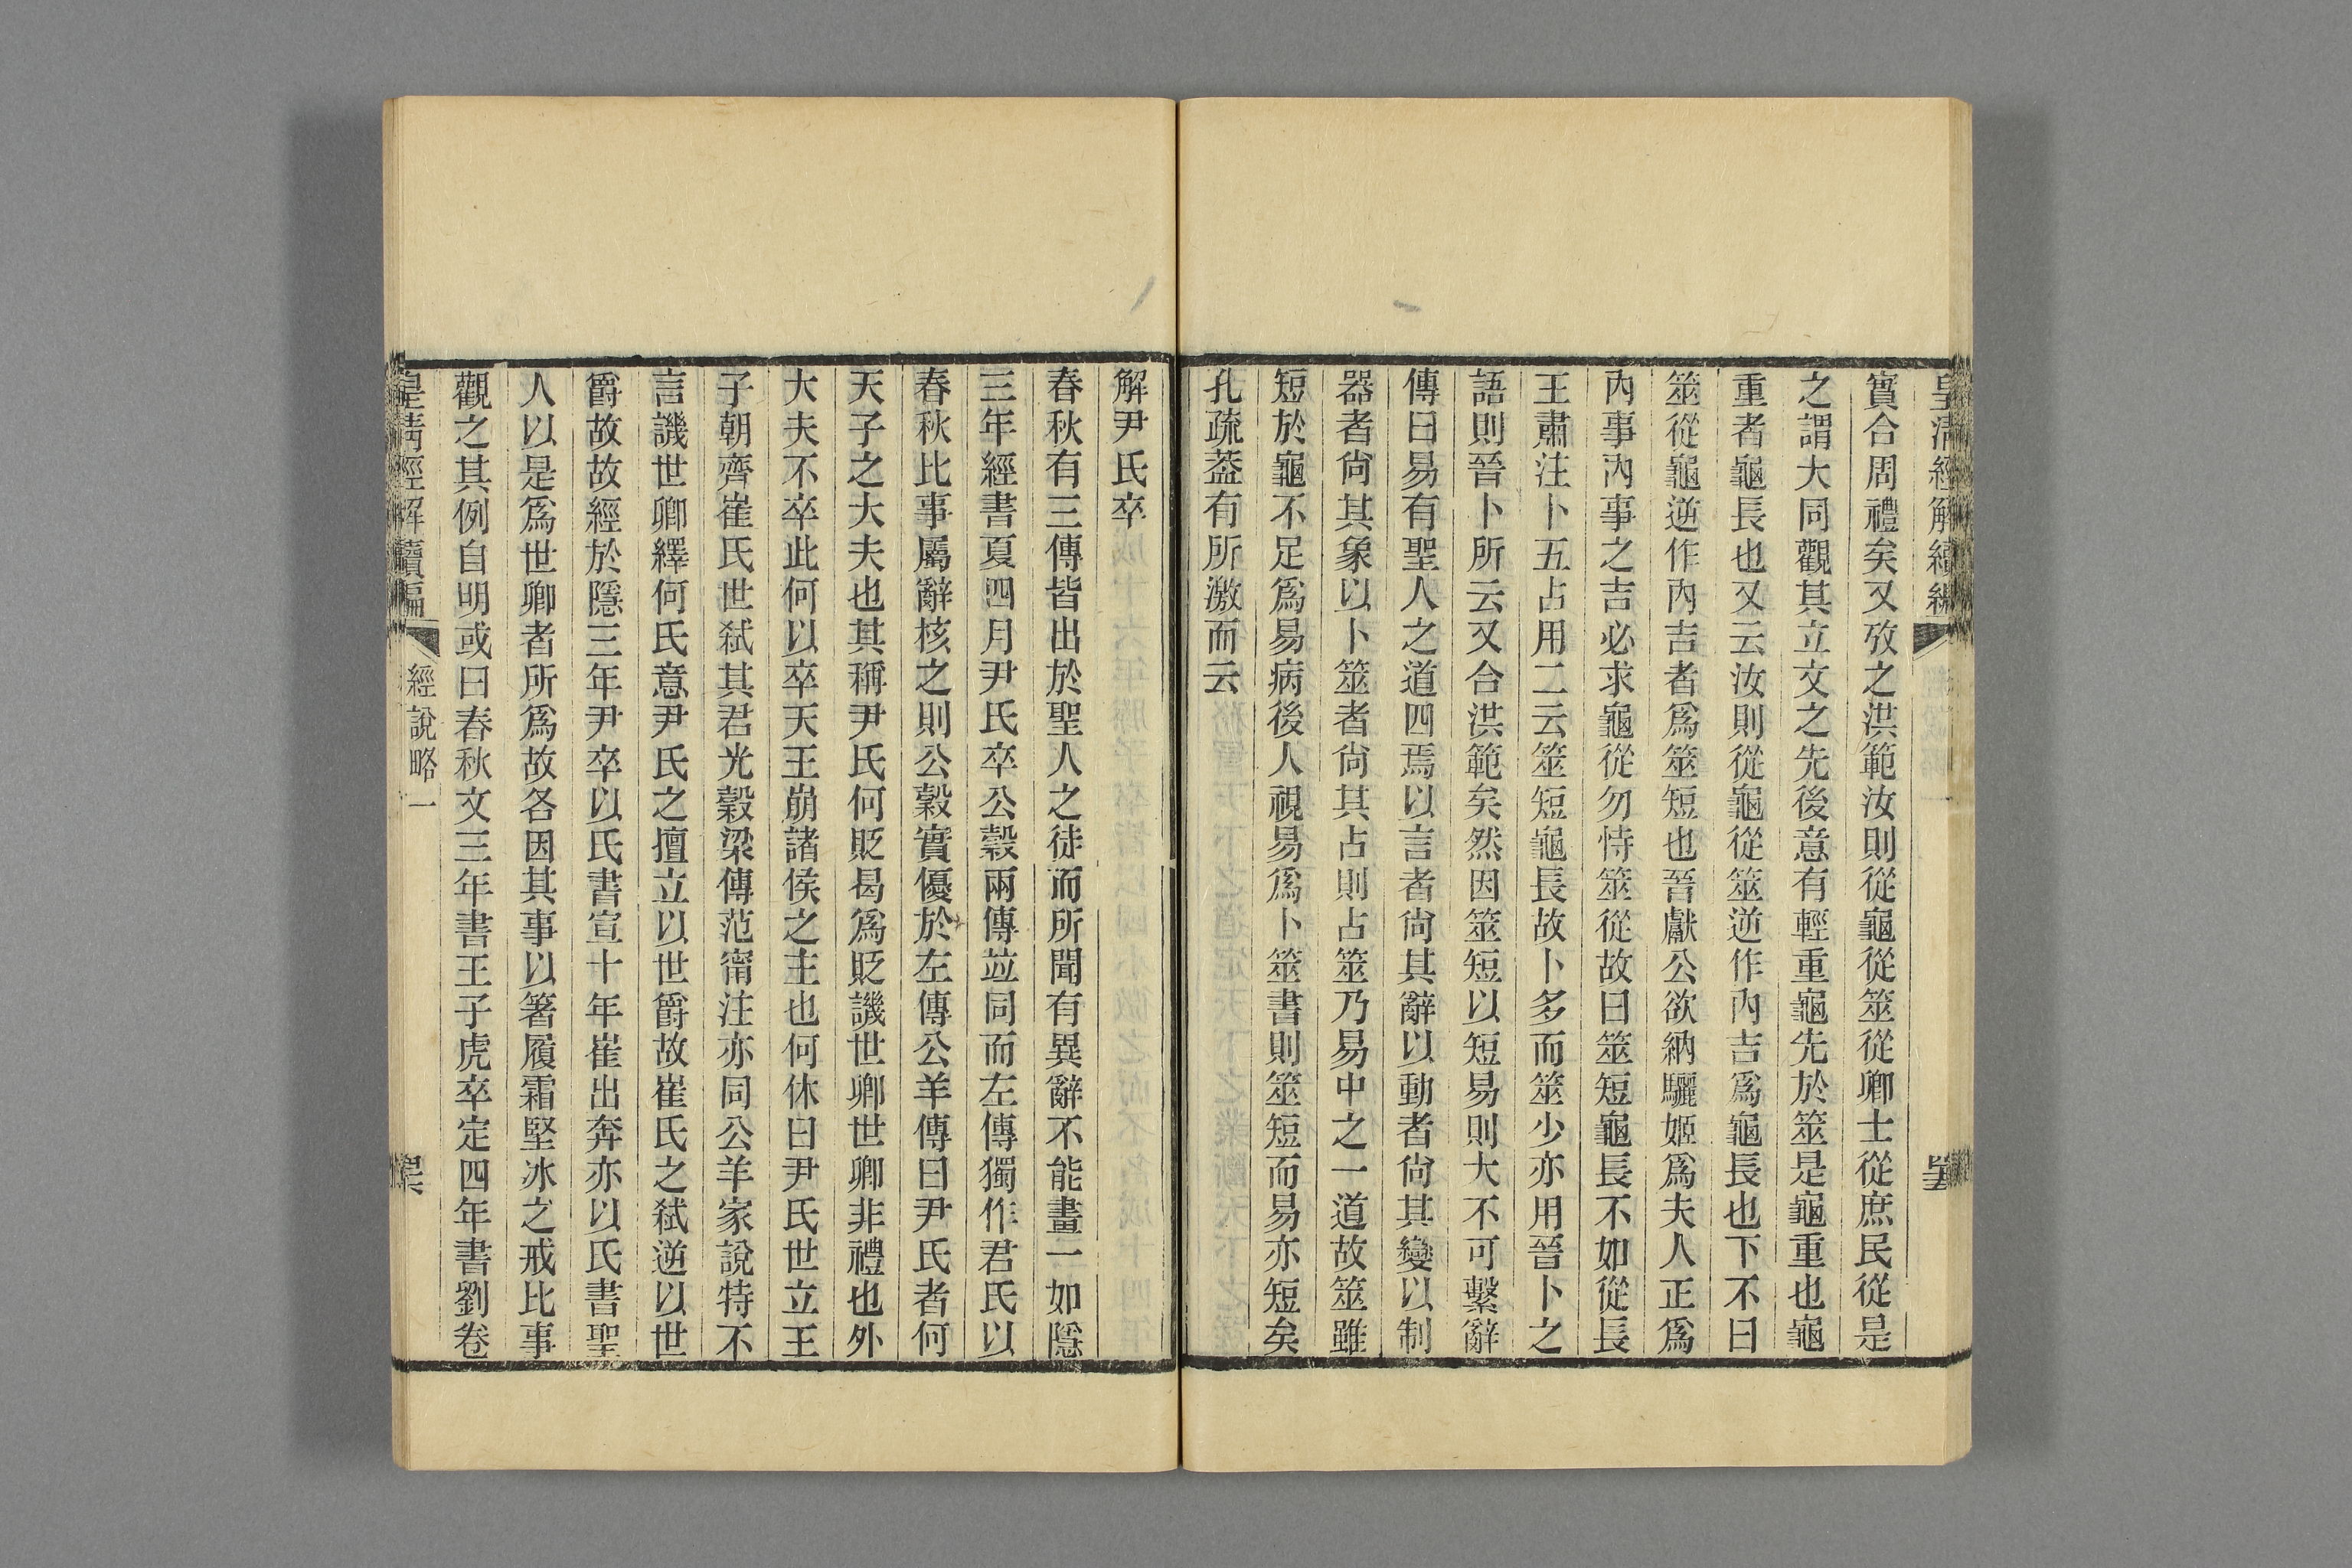 皇清經解續編
實合周禮矣又攷之洪範汝則從龜從筮從卿士從庶民從是
之謂大同觀其立文之先後意有輕重龜先於筮是龜重也龜
重者龜長也又云汝則從龜從筮逆作內吉爲龜長也下不曰
筮從龜逆作內吉者爲筮短也晉獻公欲納驪姬爲夫人正爲
內事內事之吉必求龜從勿恃筮從故曰筮短龜長不如從長
王肅注卜五占用二云筮短龜長故卜多而筮少亦用晉卜之
語則晉卜所云又合洪範矣然因筮短以短易則大不可繫辭
傳曰易有聖人之道四焉以言者尙其辭以動者尙其變以制
器者尙其象以卜筮者尙其占則占筮乃易中之一道故筮雖
短於龜不足爲易病後人視易爲卜筮書則筮短而易亦短矣
孔疏葢有所激而云
解尹氏卒
春秋有三傳皆出於聖人之徒而所聞有異辭不能畫一如隱
三年經書夏四月尹氏卒公穀兩傳竝同而左傳獨作君氏以
春秋比事屬辭核之則公穀實優於左傳公羊傳曰尹氏者何
天子之大夫也其稱尹氏何貶曷爲貶譏世卿世卿非禮也外
大夫不卒此何以卒天王崩諸侯之主也何休曰尹氏世立王
子朝齊崔氏世弒其君光穀梁傳范甯注亦同公羊家說特不
言譏世卿繹何氏意尹氏之擅立以世爵故崔氏之弒逆以世
爵故故經於隱三年尹卒以氏書宣十年崔出奔亦以氏書聖
人以是爲世卿者所爲故各因其事以箸履霜堅冰之戒比事
觀之其例自明或曰春秋文三年書王子虎卒定四年書劉卷
皇清經解續編
經說略一